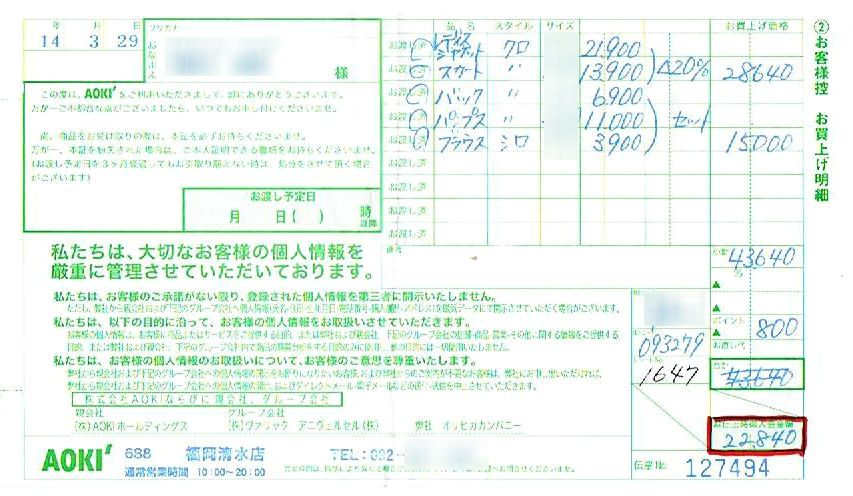 年 月 日
14 3 29
フリガナ
おなまえ
様
品名 スタイル サイズ お買上げ価格
お渡し済 レディスジャケット クロ 21,900
お渡し済 スカート 〃 13,900 △20% 28640
お渡し済 バック 〃 6,900
お渡し済 パンプス 〃 11,000 セット
お渡し済 ブラウス シロ 3,900 15,000
お渡し済
お渡し済
お渡し済
② お客様控 お買上げ明細
この度は、AOKIをご利用いただきまして、誠にありがとうございます。
万が一ご不都合な点がございましたら、いつでもお申し付けくださいませ。
尚、商品をお受け取りの際は、本証を必ずお持ちくださいませ。
万が一、本証を紛失された場合は、ご本人証明できる書類をお持ちくださいませ。
(お渡し予定日を3ヶ月経過してもお引取り願えない時は、処分をさせて頂く場合
がございます)
お渡し予定日
月 日( ) 時以降
備考
私たちは、大切なお客様の個人情報を
厳重に管理させていただいております。
小計 43640
%
▲
ポイント 800
▲
お直し代
合計 43640
私たちは、お客様のご承諾がない限り、登録された個人情報を第三者に開示いたしません。
私たちは、以下の目的に沿って、お客様の個人情報をお取扱いさせていただきます。
私たちは、お客様の個人情報のお取扱いについて、お客様のご意思を尊重いたします。
093279
1647
株式会社AOKIならびに限会社、グループ会社
限会社 グループ会社
(株)AOKIホールディングス (株)ヴァリック アニヴェルセル(株) 弊社 オリヒカカンパニー
22,840
AOKI 688 福岡清水店 TEL:092-
通常営業時間 10:00〜20:00
伝票No. 127494